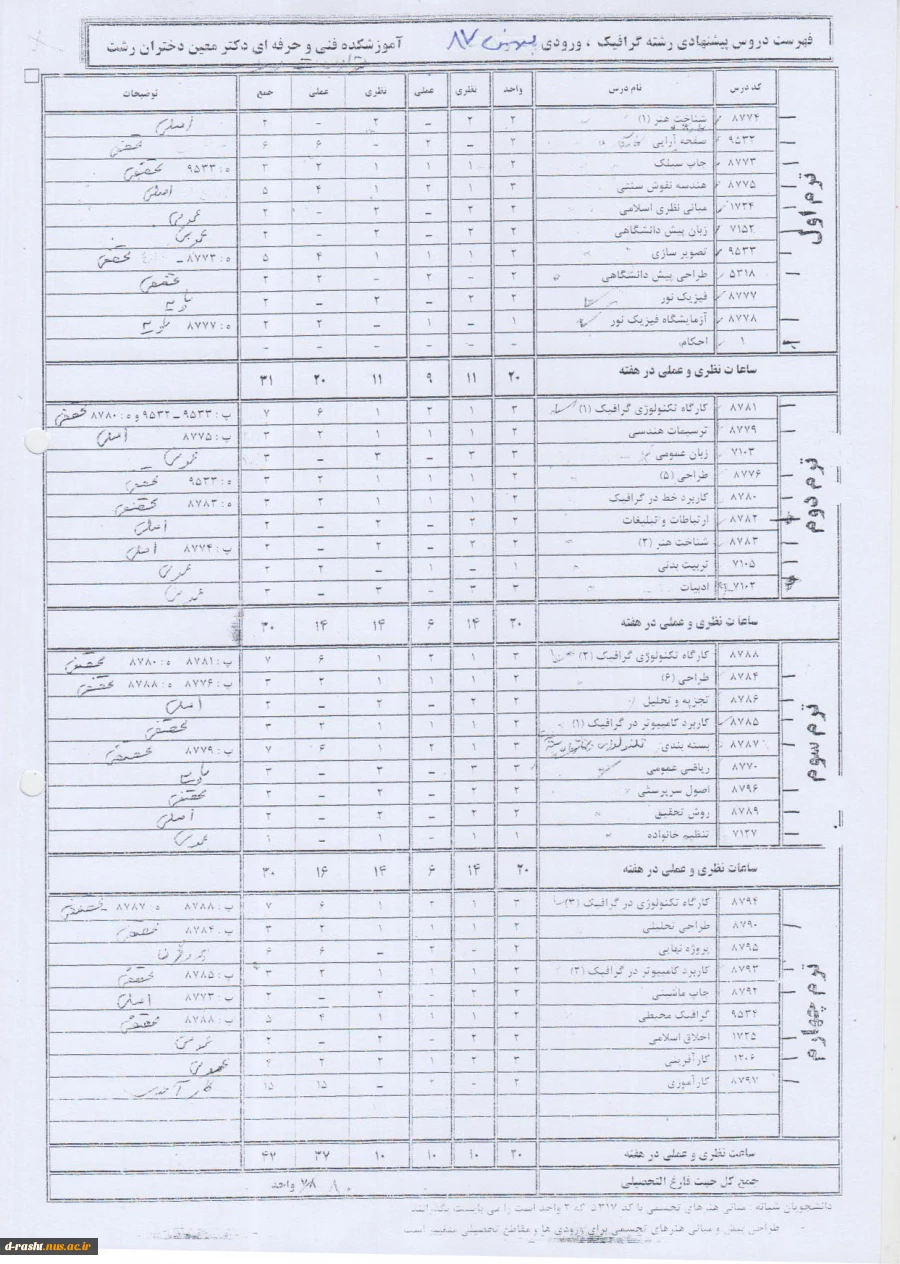 فهرست دروس پیشنهادی رشته گرافیک ، ورودی بهمن ۸۷ آموزشکده فنی و حرفه ای دکتر معین دختران رشت
کد درس نام درس واحد نظری عملی نظری عملی جمع توضیحات
ترم اول
۸۷۷۴ شناخت هنر (۱) ۲ ۲ – ۲ – ۲ اصلی
۹۵۳۲ صفحه آرایی ۲ – ۲ – ۶ ۶ تخصصی
۸۷۷۳ چاپ سیلک ۲ ۱ ۱ ۱ ۲ ۳ ه : ۹۵۳۳ تخصصی
۸۷۷۵ هندسه نقوش سنتی ۳ ۱ ۲ ۱ ۴ ۵ اصلی
۱۷۲۴ مبانی نظری اسلامی ۲ ۲ – ۲ – ۲ عمومی
۷۱۵۲ زبان پیش دانشگاهی ۲ ۲ – ۲ – ۲ عمومی
۹۵۳۳ تصویر سازی ۲ ۱ ۱ ۱ ۴ ۵ ه : ۸۷۷۳ – تخصصی
۵۳۱۸ طراحی پیش دانشگاهی ۲ – ۲ – ۲ ۲ تخصصی
۸۷۷۷ فیزیک نور ۲ ۲ – ۲ – ۲ پایه
۸۷۷۸ آزمایشگاه فیزیک نور ۱ – ۱ – ۲ ۲ ه : ۸۷۷۷ پایه
۱ احکام – – – – – –
ساعات نظری و عملی در هفته ۲۰ ۱۱ ۹ ۱۱ ۲۰ ۳۱
ترم دوم
۸۷۸۱ کارگاه تکنولوژی گرافیک (۱) ۳ ۱ ۲ ۱ ۶ ۷ پ : ۹۵۳۳ – ۹۵۳۲ و ه : ۸۷۸۰ تخصصی
۸۷۷۹ ترسیمات هندسی ۲ ۱ ۱ ۱ ۲ ۳ پ : ۸۷۷۵ اصلی
۷۱۰۳ زبان عمومی ۳ ۳ – ۳ – ۳ عمومی
۸۷۷۶ طراحی (۵) ۲ ۱ ۱ ۱ ۲ ۳ ه : ۹۵۳۳ تخصصی
۸۷۸۰ کاربرد خط در گرافیک ۲ ۱ ۱ ۱ ۲ ۳ ه : ۸۷۸۳ تخصصی
۸۷۸۲ ارتباطات و تبلیغات ۲ ۲ – ۲ – ۲ اصلی
۸۷۸۳ شناخت هنر (۲) ۲ ۲ – ۲ – ۲ پ : ۸۷۷۴ اصلی
۷۱۰۵ تربیت بدنی ۱ – ۱ – ۲ ۲ عمومی
۷۱۰۲ ادبیات ۳ ۳ – ۳ – ۳ عمومی
ساعات نظری و عملی در هفته ۲۰ ۱۴ ۶ ۱۴ ۱۴ ۳۰
ترم سوم
۸۷۸۸ کارگاه تکنولوژی گرافیک (۲) ۳ ۱ ۲ ۱ ۶ ۷ پ : ۸۷۸۱ ه : ۸۷۸۰ تخصصی
۸۷۸۴ طراحی (۶) ۲ ۱ ۱ ۱ ۲ ۳ پ : ۸۷۷۶ ه : ۸۷۸۸ تخصصی
۸۷۸۶ تجزیه و تحلیل ۲ ۲ – ۲ – ۲ اصلی
۸۷۸۵ کاربرد کامپیوتر در گرافیک (۱) ۲ ۱ ۱ ۱ ۲ ۳ تخصصی
۸۷۸۷ بسته بندی ۳ ۱ ۲ ۱ ۶ ۷ پ : ۸۷۷۹ تخصصی
۸۷۷۰ ریاضی عمومی ۳ ۳ – ۳ – ۳ پایه
۸۷۹۶ اصول سرپرستی ۲ ۲ – ۲ – ۲ تخصصی
۸۷۸۹ روش تحقیق ۲ ۲ – ۲ – ۲ اصلی
۷۱۲۷ تنظیم خانواده ۱ ۱ – ۱ – ۱ عمومی
ساعات نظری و عملی در هفته ۲۰ ۱۴ ۶ ۱۴ ۱۶ ۳۰
ترم چهارم
۸۷۹۴ کارگاه تکنولوژی در گرافیک (۳) ۳ ۱ ۲ ۱ ۶ ۷ پ : ۸۷۸۸ ه : ۸۷۸۷ – تخصصی
۸۷۹۰ طراحی تحلیلی ۲ ۱ ۱ ۱ ۲ ۳ پ : ۸۷۸۴ تخصصی
۸۷۹۵ پروژه نهایی ۲ – ۲ – ۶ ۶
۸۷۹۳ کاربرد کامپیوتر در گرافیک (۲) ۲ ۱ ۱ ۱ ۲ ۳ پ : ۸۷۸۵ تخصصی
۸۷۹۲ چاپ ماشینی ۲ ۲ – ۲ – ۲ پ : ۸۷۷۳ اصلی
۹۵۳۴ گرافیک محیطی ۲ ۱ ۱ ۱ ۴ ۵ پ : ۸۷۸۸ تخصصی
۱۷۲۵ اخلاق اسلامی ۲ ۲ – ۲ – ۲ عمومی
۱۲۰۶ کارآفرینی ۳ ۲ ۱ ۲ ۲ ۴ عمومی
۸۷۹۷ کارآموزی ۲ – ۲ – ۱۵ ۱۵ کارآموزی
ساعت نظری و عملی در هفته ۲۰ ۱۰ ۱۰ ۱۰ ۳۷ ۴۷
جمع کل جهت فارغ التحصیلی ۸۰ واحد
دانشجویان شبانه . مبانی هنرهای تجسمی با کد ۵۳۱۷ که ۲ واحد است را می بایست بگذرانند
– طراحی پیش و مبانی هنرهای تجسمی برای ورودی ها و مقاطع تحصیلی متغیر است
d-rasht.nus.ac.ir